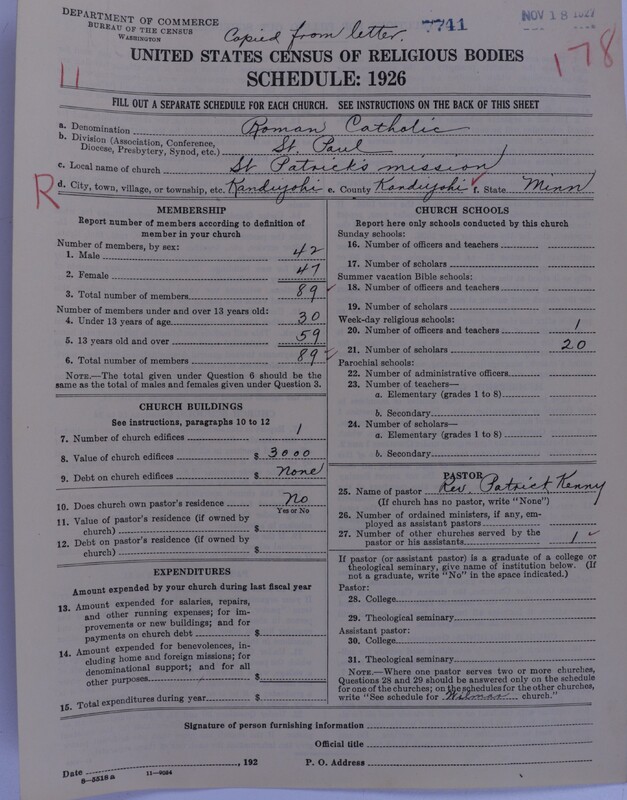 DEPARTMENT OF COMMERCE
BUREAU OF THE CENSUS
WASHINGTON
Copied from letter.
7741
NOV 18 1927
178
UNITED STATES CENSUS OF RELIGIOUS BODIES
SCHEDULE: 1926
FILL OUT A SEPARATE SCHEDULE FOR EACH CHURCH. SEE INSTRUCTIONS ON THE BACK OF THIS SHEET
a. Denomination Roman Catholic
b. Division (Association, Conference,
Diocese, Presbytery, Synod, etc.) St. Paul
c. Local name of church St Patrick's mission
R d. City, town, village, or township, etc. Kandiyohi e. County Kandiyohi f. State Minn
MEMBERSHIP
Report number of members according to definition of
member in your church
Number of members, by sex:
1. Male 42
2. Female 47
3. Total number of members 89
Number of members under and over 13 years old:
4. Under 13 years of age 30
5. 13 years old and over 59
6. Total number of members 89
NOTE.—The total given under Question 6 should be
same as the total of males and females given under Question 3.
CHURCH BUILDINGS
See instructions, paragraphs 10 to 12
7. Number of church edifices 1
8. Value of church edifices $ 3000
9. Debt on church edifices $ none
10. Does church own pastor's residence No
Yes or No
11. Value of pastor's residence (if owned by
church) $
12. Debt on pastor's residence (if owned by
church) $
EXPENDITURES
Amount expended by your church during last fiscal year
13. Amount expended for salaries, repairs,
and other running expenses; for im-
provements or new buildings; and for
payments on church debt $
14. Amount expended for benevolences, in-
cluding home and foreign missions; for
denominational support; and for all
other purposes $
15. Total expenditures during year $
CHURCH SCHOOLS
Report here only schools conducted by this church
Sunday schools:
16. Number of officers and teachers
17. Number of scholars
Summer vacation Bible schools:
18. Number of officers and teachers
19. Number of scholars
Week-day religious schools:
20. Number of officers and teachers 1
21. Number of scholars 20
Parochial schools:
22. Number of administrative officers
23. Number of teachers—
a. Elementary (grades 1 to 8)
b. Secondary
24. Number of scholars—
a. Elementary (grades 1 to 8)
b. Secondary
PASTOR
25. Name of pastor Rev. Patrick Kenny
(If church has no pastor, write "None")
26. Number of ordained ministers, if any, em-
ployed as assistant pastors
27. Number of other churches served by the
pastor or his assistants 1
If pastor (or assistant pastor) is a graduate of a college or
theological seminary, give name of institution below. (If
not a graduate, write "No" in the space indicated.)
Pastor:
28. College
29. Theological seminary
Assistant pastor:
30. College
31. Theological seminary
NOTE.—Where one pastor serves two or more churches,
Questions 28 and 29 should be answered only on the schedule
for one of the churches; on the schedules for the other churches,
write "See schedule for Wilmar church."
Signature of person furnishing information
Official title
Date , 192 P. O. Address
8—5518a 11—9024